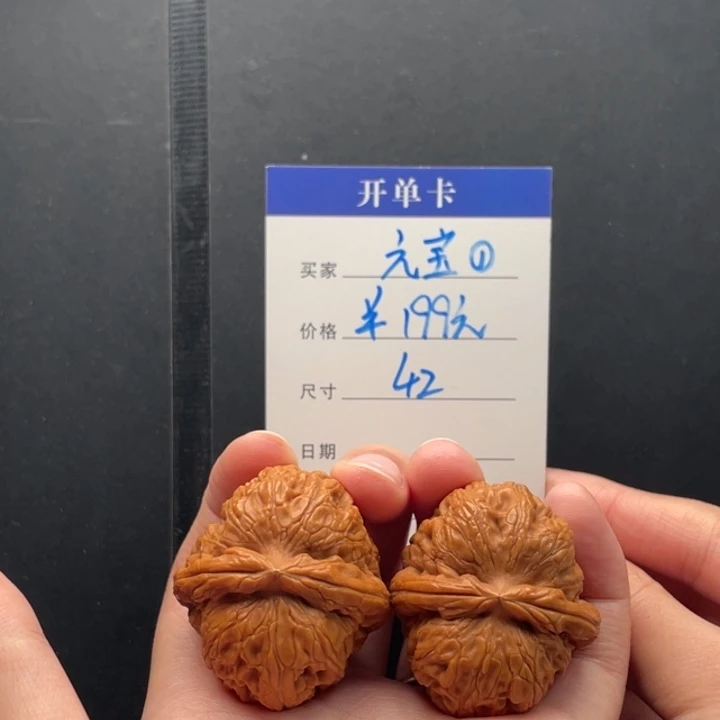 开单卡
买家 元宝①
价格 ¥199元
尺寸 42
日期